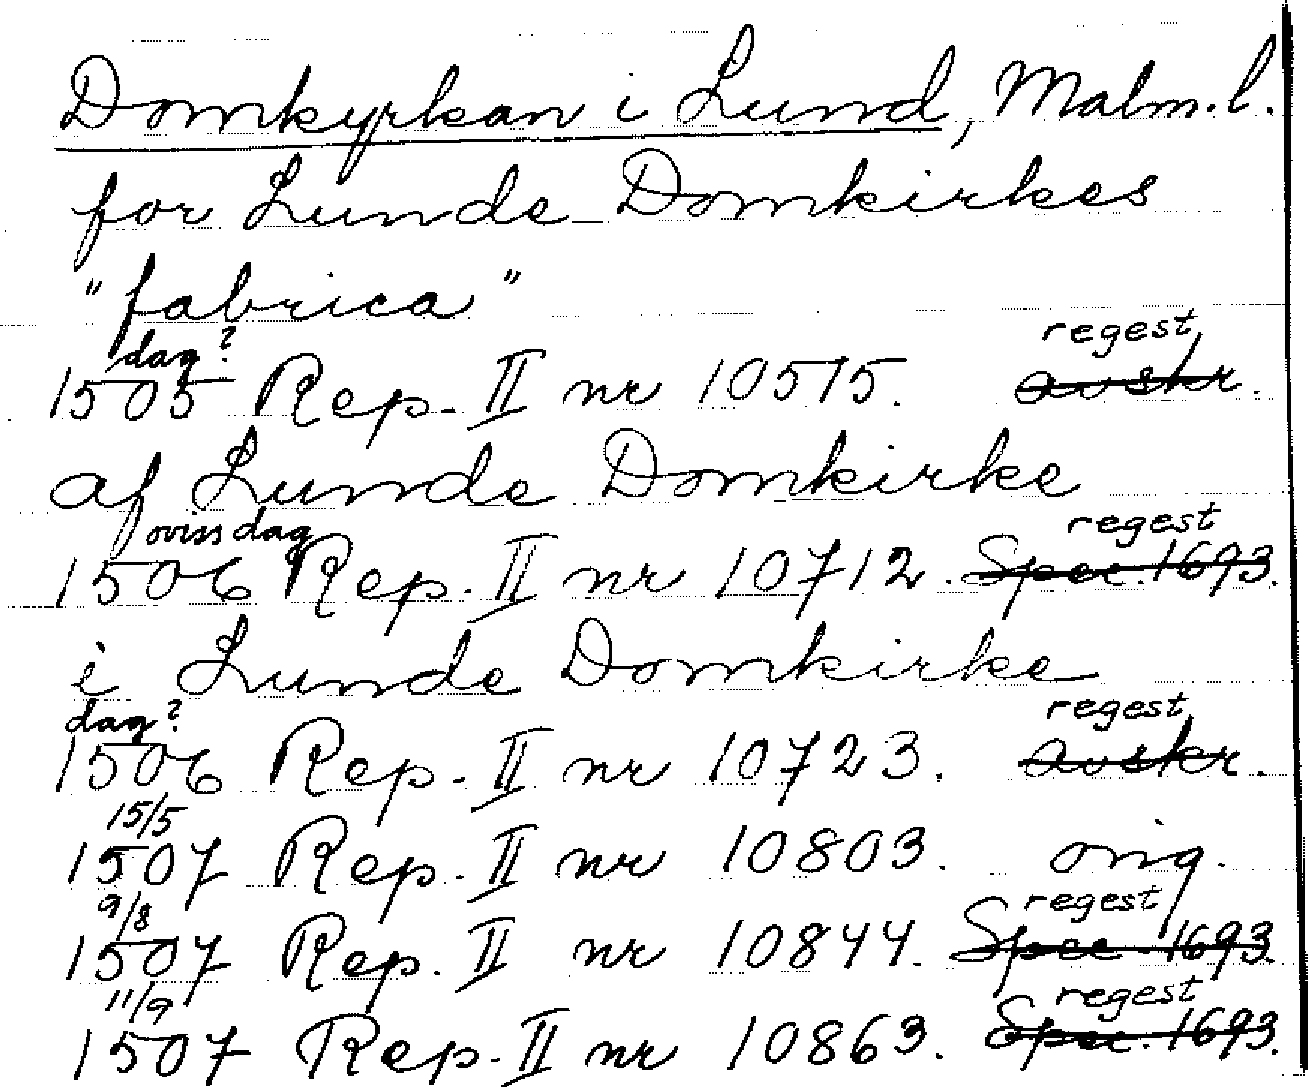 Domkyrkan i Lund, Malm. l.
for Lunde Domkirkes
"fabrica"
dag? regest
1505 Rep. II nr 10575. avskr.
af Lunde Domkirke
oviss dag regest
1506 Rep. II nr 10712. Spec. 1693.
i Lunde Domkirke
dag? regest
1506 Rep. II nr 10723. avskr.
15/5
1507 Rep. II nr 10803. orig.
9/8 regest
1507 Rep. II nr 10844. Spec. 1693.
11/9 regest
1507 Rep. II nr 10863. Spec. 1693.